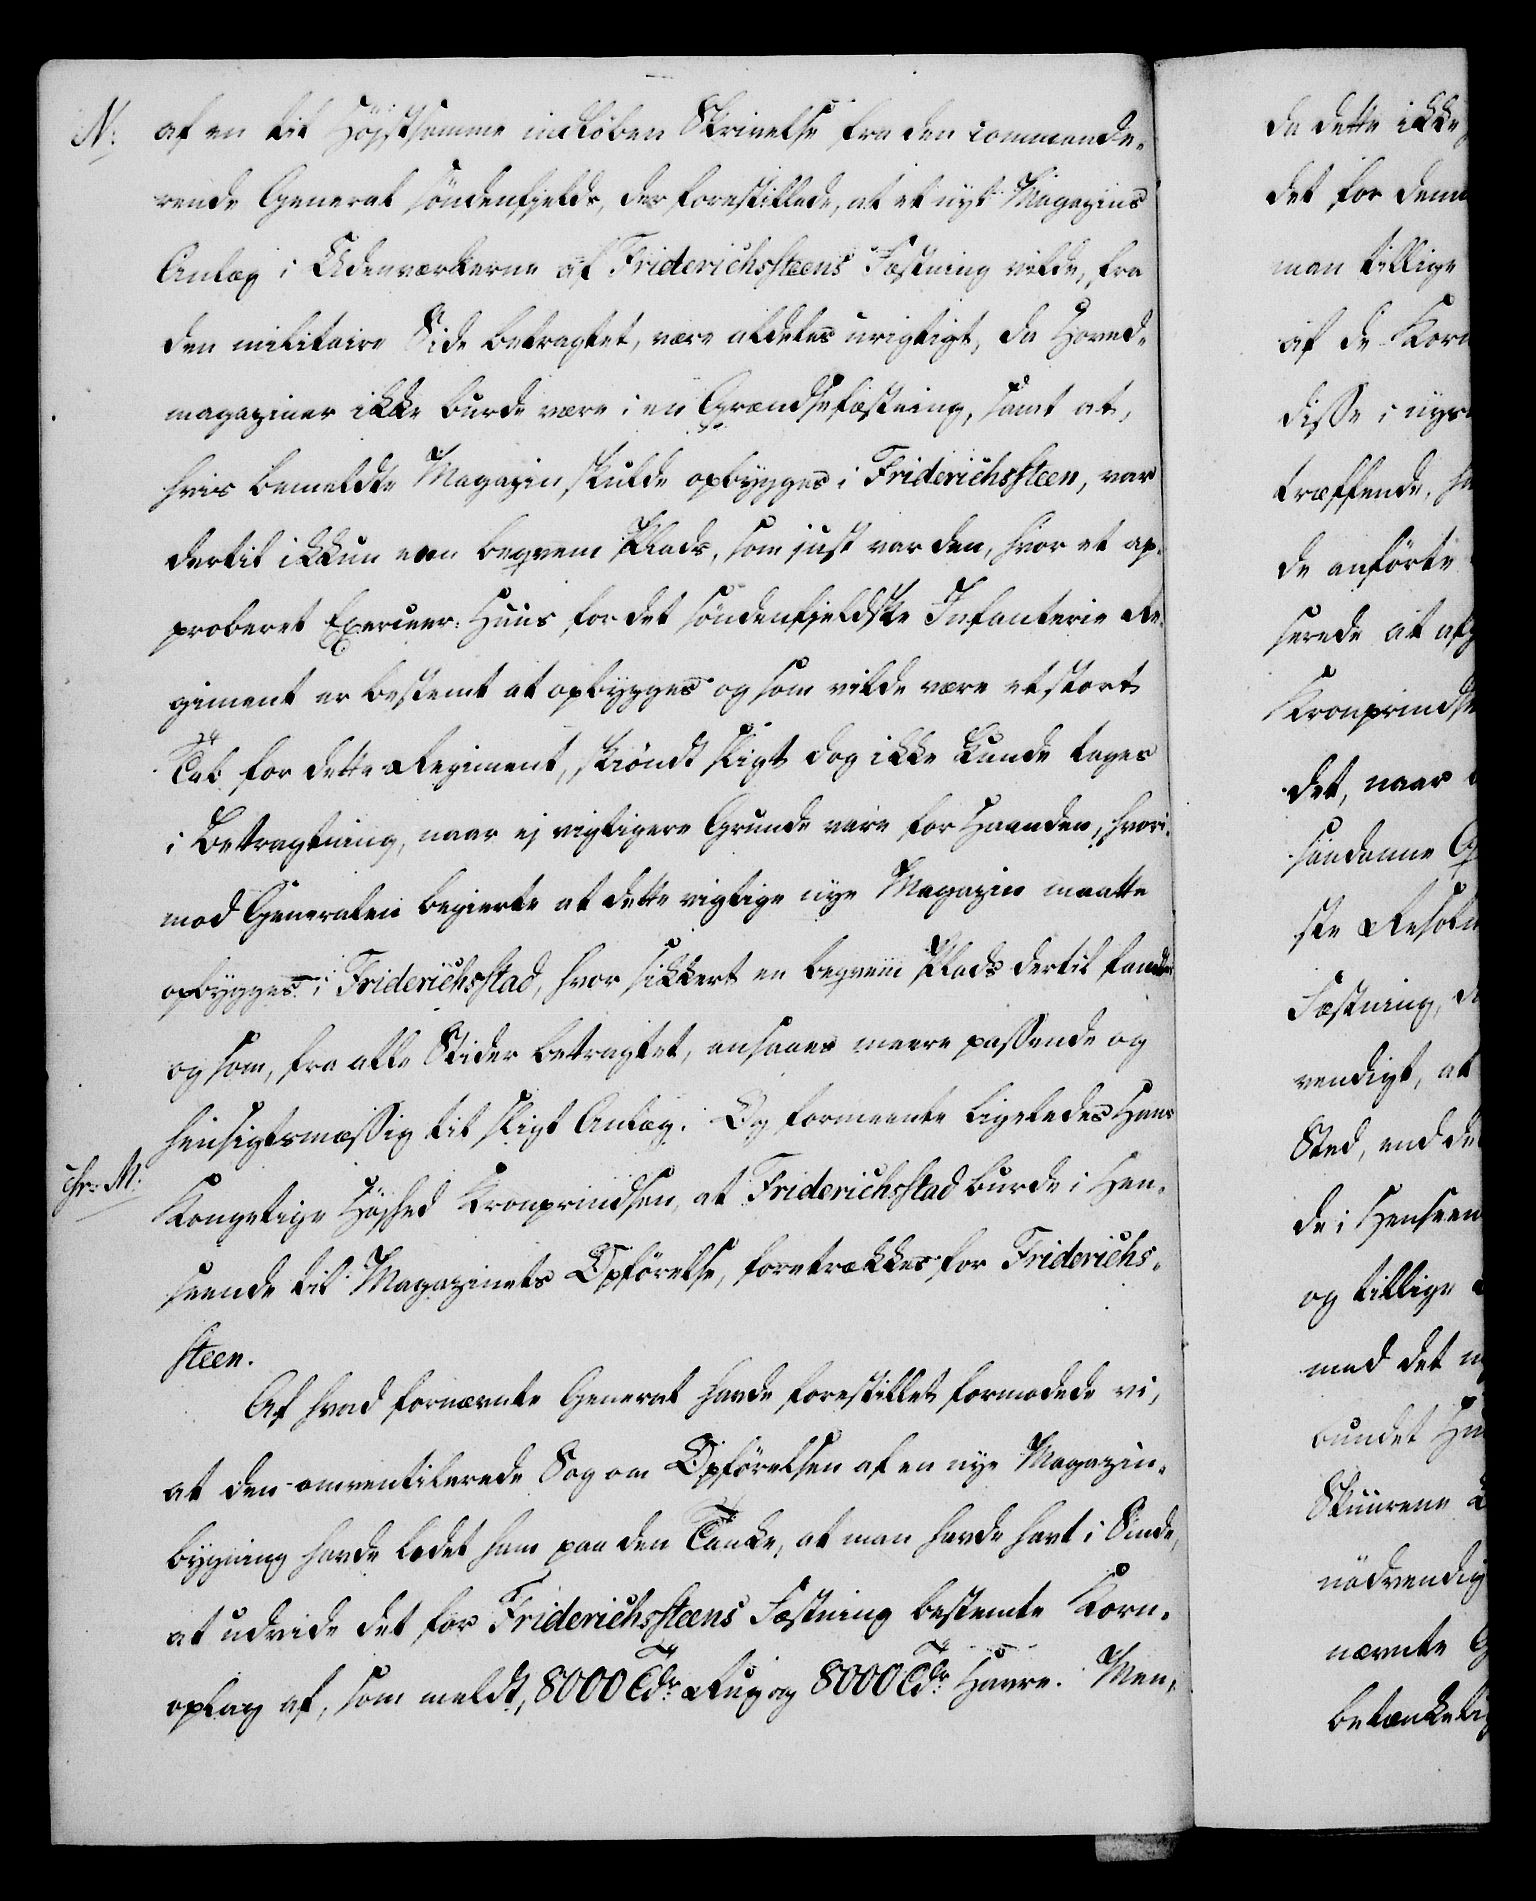 N:
af en til Höjstsamme indløben Skrivelse fra den commande-
rende General söndenfjelds, der forestillede, at et nyt Magazins
Anlæg i Udenværkerne af Friderichssteens Fæstning vilde, fra
den militaire Side betragtet, være aldeles urigtigt, da Hoved-
magaziner ikke burde være i en Grændsefæstning, samt at,
hvis bemeldte Magazin skulde opbygges i Friderichssteen, var
dertil ikkun een beqvem Plads, som just var den, hvor et ap-
proberet Exerceer-Huus for det söndenfjeldske Infanterie Re-
giment er bestemt at opbygges og som vilde være et stort
Tab for dette Regiment, skiöndt sligt dog ikke kunde tages
i Betragtning, naar ej vigtigere Grunde vare for Haanden, hvori-
mod Generalen begierte at dette vigtige nye Magazin maatte
opbygges i Friderichsstad, hvor sikkert en beqvem Plads dertil fandtes
og som, fra alle Sider betragtet, ansaaes meere passende og
hensigtsmæssig til sligt Anlæg. Og formeente ligeledes Hans
Kongelige Höjhed Kronprindsen, at Friderichsstad burde i Hen-
seende til Magazinets Opförelse, foretrækkes for Friderichs-
steen.
Af hvad fornævnte General havde forestillet formodede vi,
at den omventilerede Sag om Opförelsen af en nye Magazin-
bygning havde ledet ham paa den Tanke, at man havde havt i Sinde,
at udvide det for Friderichssteens Fæstning bestemte Korn-
oplag af, som meldt, 8000 Tdr Rug og 8000 Tdr Havre. Men,
da dette ikke
det for denn
man tillige
af de Korn
disse i nys
træffende, ha
de anförte
serede at afg
Kronprindse
det, naar
saadanne G
ste Resolu
Fæstning, d
vendigt, at
Sted, end de
de i Henseen
og tillige
med det n
bundet
Skuurene
nödvendig
nævnte G
betænkelig